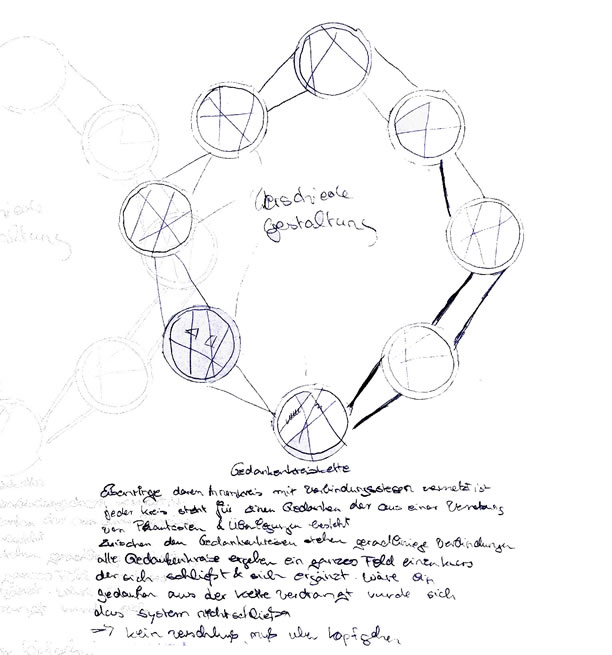 gestaltung
Gedankenkreiskette
Eisenringe deren Innenkreis mit Verbindungsstegen vernetzt ist
jeder Kreis steht für einen Gedanken der aus einer Vernetzung
von Phantasien & Überlegungen besteht
Zwischen den Gedankenkreisen stehen geradlinige Verbindungen
alle Gedankenkreise ergeben ein ganzes Feld einen
der sich schließt & sich ergänzt wäre ein
gedanken aus der Kette verdrängt wurde sich
das system nicht schließen
=> kein verschluß, muß über kopf gehen